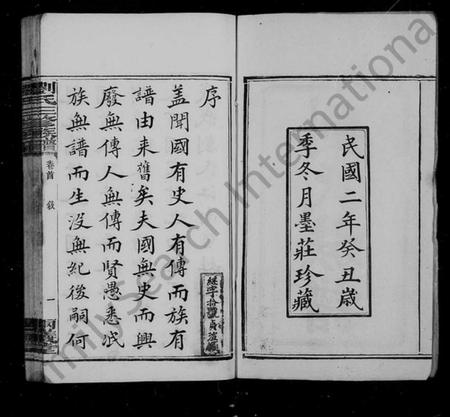 民國二年癸丑歲
季冬月墨莊珍藏
序
蓋聞國有史人有傳而族有
譜由来舊矣夫國無史而興
廢無傳人無傳而賢愚悉泯
族無譜而生没無紀後嗣何
劉氏三修族譜
卷首
敘
一
FamilySearch International